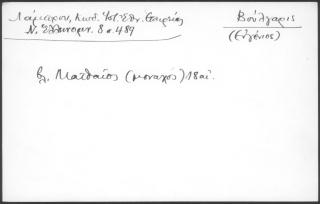 Λάμπρου, Κωδ. Ἱστ. Ἐθν. Ἑταιρείας
Ν. Ἑλληνομν. 8 σ. 489
Βούλγαρις
(Εὐγένιος)
βλ. Ματθαῖος (μοναχὸς) 18 αἰ.